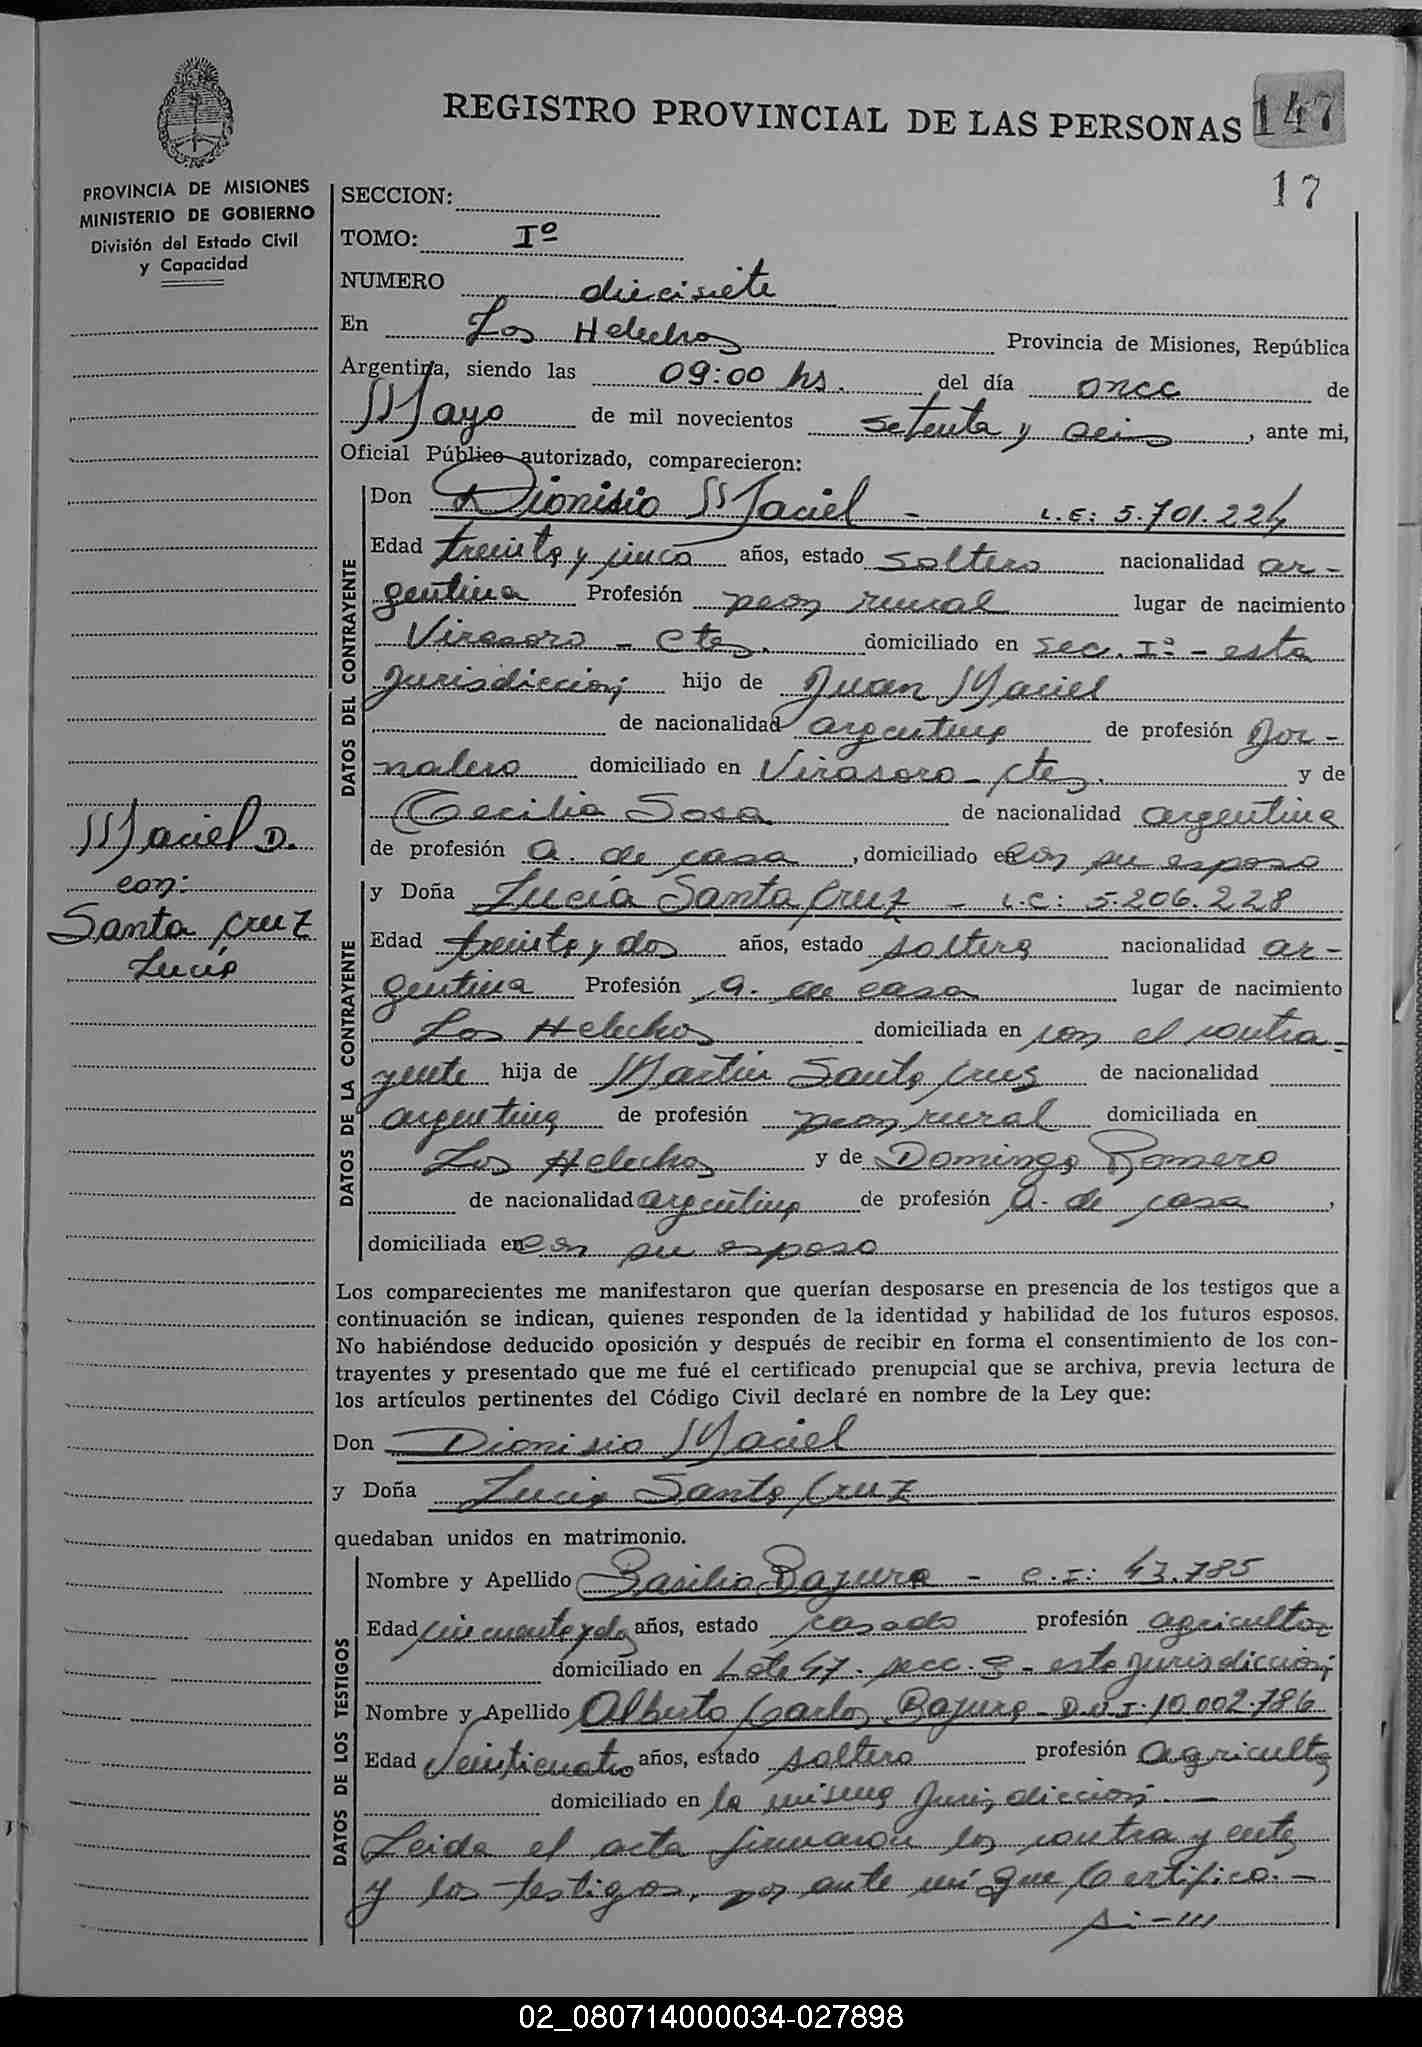 REGISTRO PROVINCIAL DE LAS PERSONAS 147
17
PROVINCIA DE MISIONES
MINISTERIO DE GOBIERNO
División del Estado Civil
y Capacidad
Maciel D.
con:
Santa Cruz
Lucía
SECCION:
TOMO: Iº
NUMERO diecisiete
En Los Helechos Provincia de Misiones, República
Argentina, siendo las 09:00 hs. del día once de
Mayo de mil novecientos setenta y seis, ante mi,
Oficial Público autorizado, comparecieron:
DATOS DEL CONTRAYENTE
Don Dionisio Maciel - L.E: 5.701.224
Edad treinta y cinco años, estado soltero nacionalidad ar-
gentina Profesión peon rural lugar de nacimiento
Virasoro - Ctes. domiciliado en sec. Iª - esta
Jurisdiccion; hijo de Juan Maciel
de nacionalidad argentina de profesión Jor-
nalero domiciliado en Virasoro - Ctes. y de
Cecilia Sosa de nacionalidad argentina
de profesión a. de casa, domiciliado en con su esposo
DATOS DE LA CONTRAYENTE
y Doña Lucía Santa Cruz - L.C: 5.206.228
Edad treinta y dos años, estado soltera nacionalidad ar-
gentina Profesión a. de casa lugar de nacimiento
Los Helechos domiciliada en con el contra-
yente hija de Martin Santa Cruz de nacionalidad
argentina de profesión peon rural domiciliada en
Los Helechos y de Dominga Romero
de nacionalidad argentina de profesión a. de casa,
domiciliada en con su esposo
Los comparecientes me manifestaron que querían desposarse en presencia de los testigos que a
continuación se indican, quienes responden de la identidad y habilidad de los futuros esposos.
No habiéndose deducido oposición y después de recibir en forma el consentimiento de los con-
trayentes y presentado que me fué el certificado prenupcial que se archiva, previa lectura de
los artículos pertinentes del Código Civil declaré en nombre de la Ley que:
Don Dionisio Maciel
y Doña Lucia Santa Cruz
quedaban unidos en matrimonio.
DATOS DE LOS TESTIGOS
Nombre y Apellido Basilio Bajura - C.I: 43.785
Edad cincuenta y dos años, estado casado profesión agricultor
domiciliado en Lote 47. secc. - esta Jurisdiccion;
Nombre y Apellido Alberto Carlos Bajura - D.N.I: 10.002.786
Edad Veinticuatro años, estado soltero profesión agricultor
domiciliado en la misma Jurisdiccion; -
Leida el acta firmaron los contrayentes
y los testigos, por ante mí que Certifico. -
02_080714000034-027898